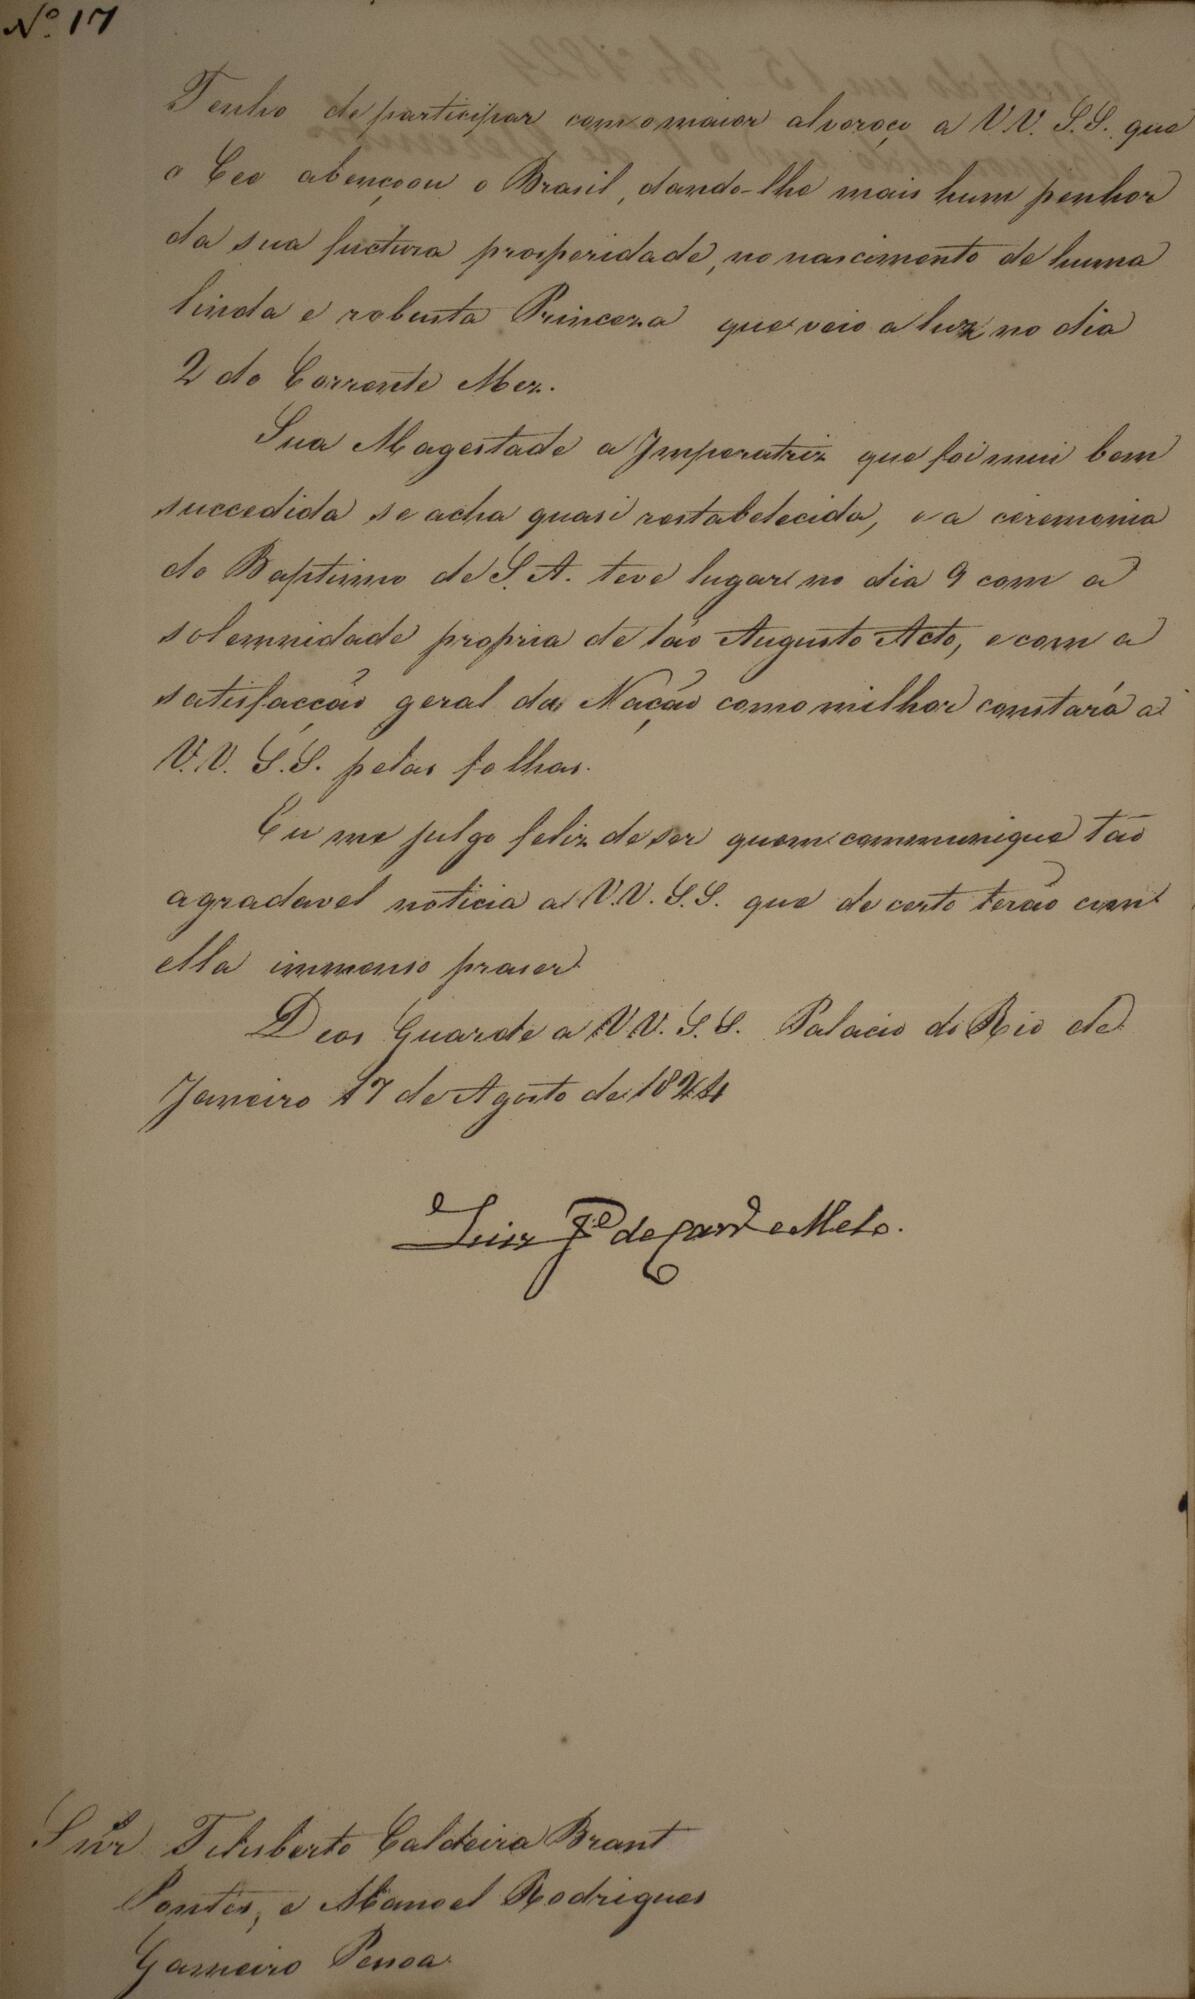 Nº 17
Tenho de participar com o maior alvoroço a V.V. S.S. que
o Ceo abençoou o Brasil, dando-lhe mais hum penhor
da sua fuctura prosperidade, no nascimento de huma
linda e robusta Princeza que veio a luz no dia
2 do Corrente Mez.
Sua Magestade a Imperatriz que foi mui bem
succedida se acha quasi restabelecida, e a ceremonia
do Baptismo de S. A. teve lugar no dia 9 com a
solemnidade propria de tão Augusto Acto, e com a
satisfacção geral da Nação como milhor constará a
V.V. S.S. pelas folhas.
Eu me julgo feliz de ser quem communique tão
agradavel noticia a V.V. S.S. que de certo terão com
ella immenso praser.
Deos Guarde a V.V. S.S. Palacio do Rio de
Janeiro 17 de Agosto de 1824
Luiz Je de Carvº e Melo.
Snr Feliberto Caldeira Brant
Pontes, e Manoel Rodrigues
Gameiro Pessoa